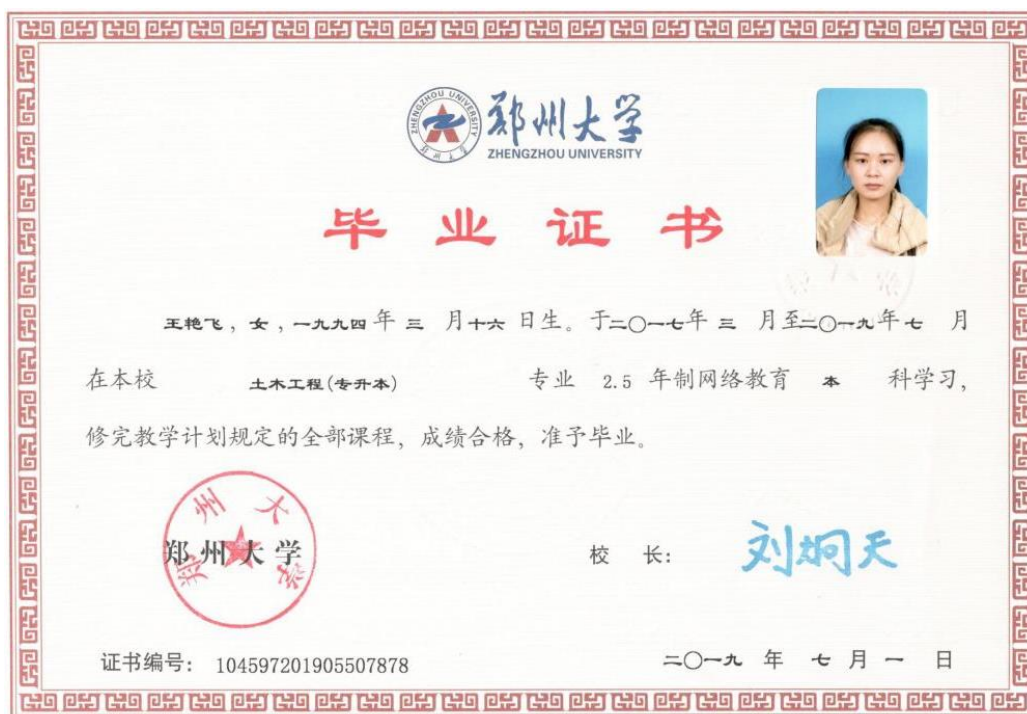 ZHENGZHOU UNIVERSITY
郑州大学
ZHENGZHOU UNIVERSITY
毕业证书
王艳飞，女，一九九四年三月十六日生。于二〇一七年三月至二〇一九年七月
在本校 土木工程(专升本) 专业 2.5 年制网络教育 本 科学习，
修完教学计划规定的全部课程，成绩合格，准予毕业。
郑州大学
郑州大学
校 长：
刘炯天
证书编号：104597201905507878
二〇一九年七月一日